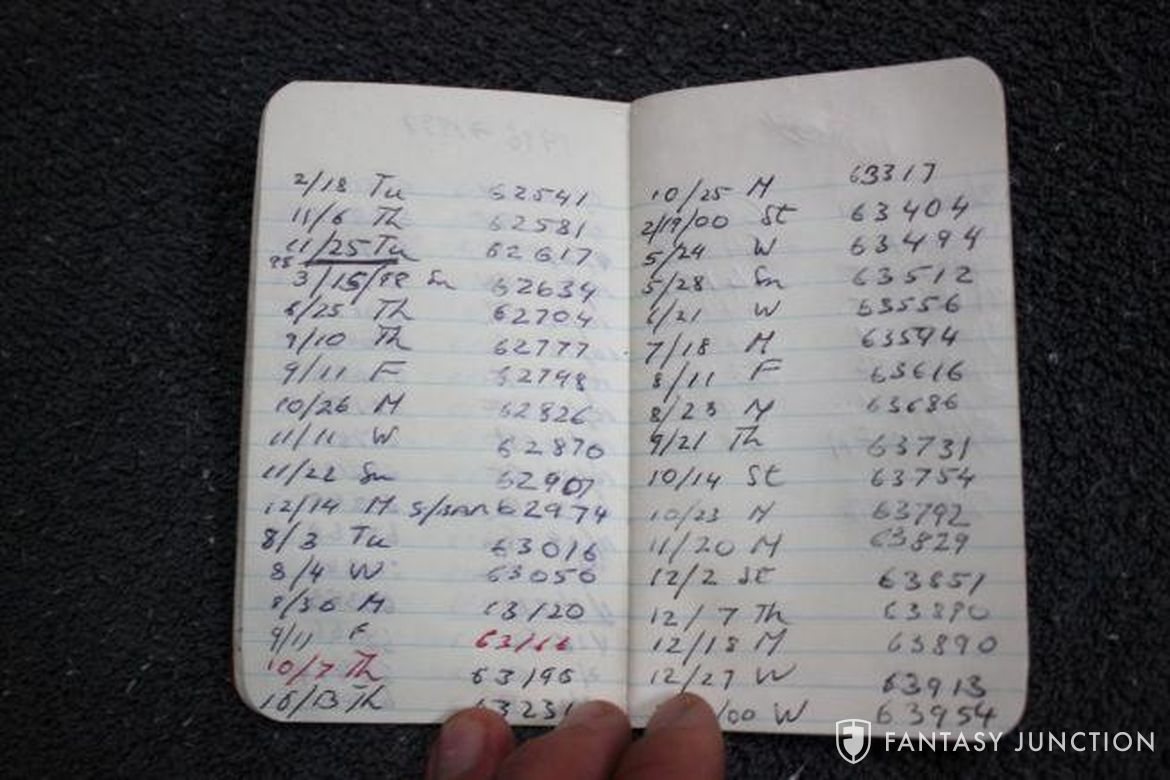 2/18 Tu 62541
11/6 Th 62581
11/25 Tu 62617
98 3/15/98 Sn 62634
6/25 Th 62704
9/10 Th 62777
9/11 F 62798
10/26 M 62826
11/11 W 62870
11/22 Sn 62907
12/14 M 62974
8/3 Tu 63016
8/4 W 63056
8/30 M 63120
9/11 F 63166
10/7 Th 63196
10/13 Th 6323
10/25 M 63317
2/19/00 St 63404
5/24 W 63494
5/28 Sn 63512
6/21 W 63556
7/18 M 63594
8/11 F 63616
8/23 M 63686
9/21 Th 63731
10/14 St 63754
10/23 M 63792
11/20 M 63829
12/2 St 63851
12/7 Th 63890
12/18 M 63890
12/27 W 63913
/00 W 63954
FANTASY JUNCTION